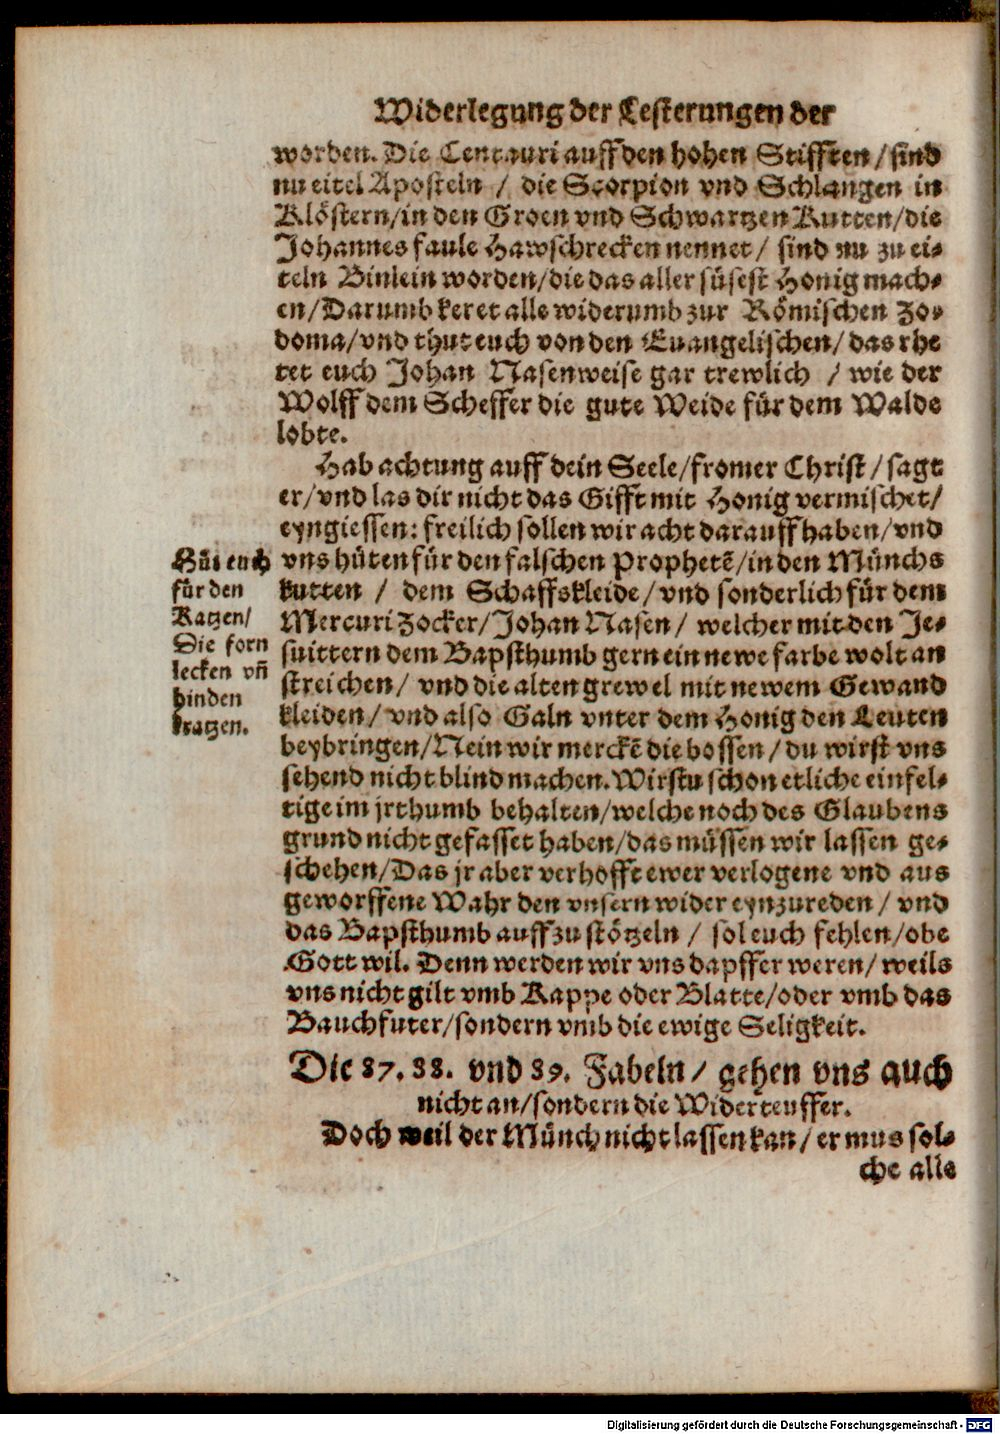 Widerlegung der Lesterungen der
worden. Die Centauri auff den hohen Stifften / sind
nu eitel Aposteln / die Scorpion vnd Schlangen in
Klöstern/in den Groen vnd Schwartzen Kutten/die
Johannes faule Hawschrecken nennet / sind nu zu ei-
teln Binlein worden/die das aller süsest Honig mach-
en/Darumb keret alle widerumb zur Römischen Zo-
doma/vnd thut euch von den Euangelischen/das rhe
tet euch Johan Nasenweise gar trewlich / wie der
Wolff dem Scheffer die gute Weide für dem Walde
lobte.
Hab achtung auff dein Seele/fromer Christ / sagt
er/vnd las dir nicht das Gifft mit Honig vermischet/
eyngiessen: freilich sollen wir acht darauff haben/vnd
vns hüten für den falschen Prophetē/in den Münchs
kutten / dem Schaffskleide/vnd sonderlich für dem
Mercuri Zocker/Johan Nasen / welcher mit den Je-
suittern dem Bapsthumb gern ein newe farbe wolt an
streichen/ vnd die alten grewel mit newem Gewand
kleiden/vnd also Galn vnter dem Honig den Leuten
beybringen/Nein wir merckē die bossen / du wirst vns
sehend nicht blind machen. Wirstu schon etliche einfel-
tige im jrthumb behalten/welche noch des Glaubens
grund nicht gefasset haben/das müssen wir lassen ge-
schehen/Das jr aber verhofft ewer verlogene vnd aus
geworffene Wahr den vnsern wider eynzureden / vnd
das Bapsthumb auffzustötzeln / sol euch fehlen/obe
Gott wil. Denn werden wir vns dapffer weren/ weils
vns nicht gilt vmb Kappe oder Blatte/oder vmb das
Bauchfuter/sondern vmb die ewige Seligkeit.
Hüt euch
für den
Katzen/
Die forn
lecken vñ
hinden
kratzen.
Die 37. 38. vnd 39. Fabeln / gehen vns auch
nicht an/sondern die Widerteuffer.
Doch weil der Münch nicht lassen kan / er mus sol-
che alle
Digitalisierung gefördert durch die Deutsche Forschungsgemeinschaft - DFG